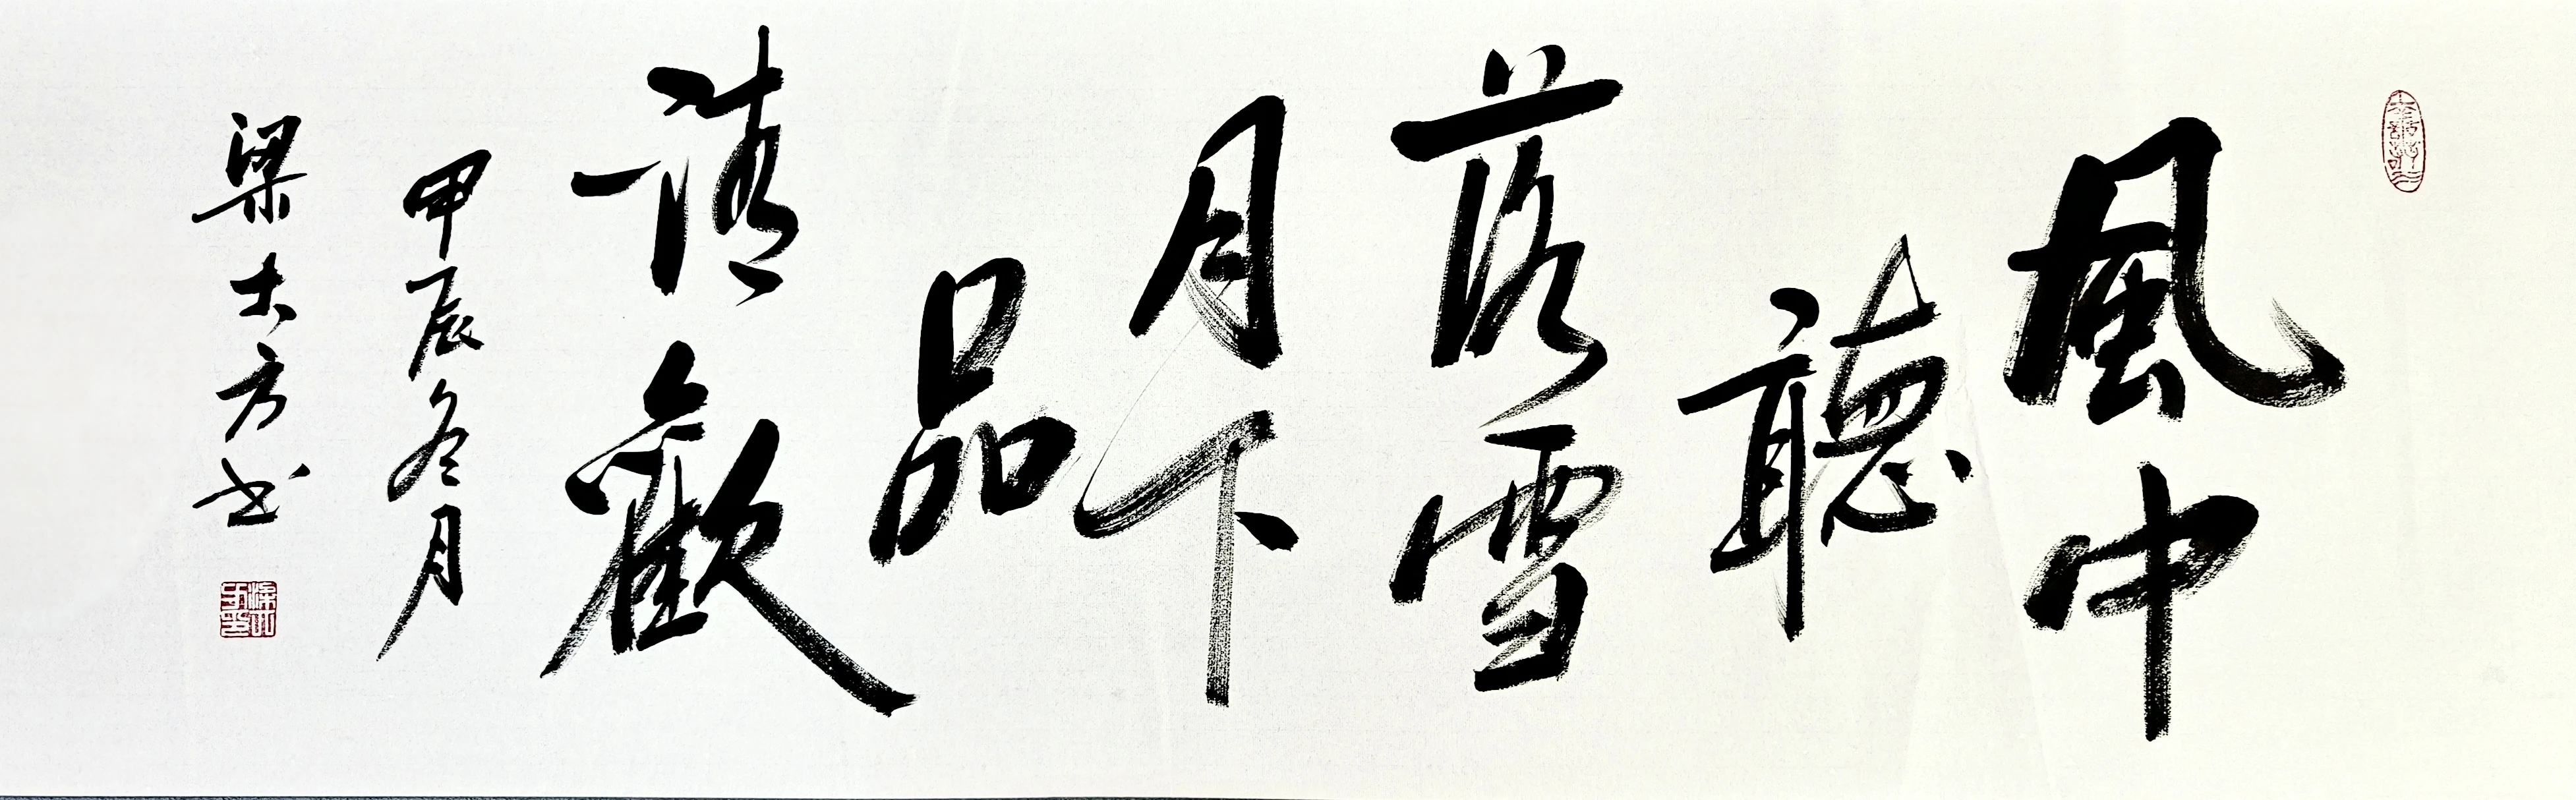 風中
聽
落雪
月下
品
清歡
甲辰冬月
梁大方书